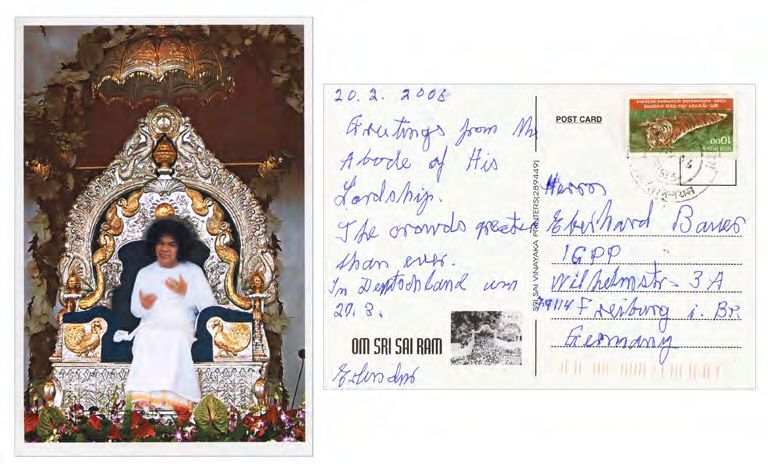 20.2. 2006
Greetings from the
Abode of His
Lordship.
The crowds greater
than ever.
In Deutschland um
20.3.
OM SRI SAI RAM
Erlendur
SRI SAI VINAYAKA PRINTERS(289449)
POST CARD
1000
Herrn
Eberhard Bauer
IGPP
Wilhelmstr. 3A
79114 Freiburg i. Br.
Germany